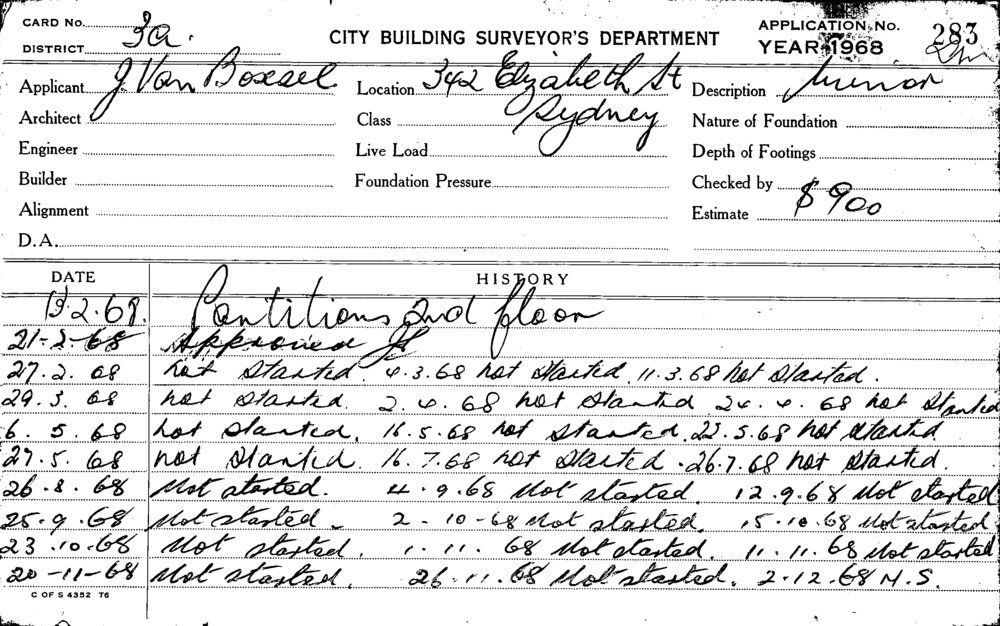 CARD No. 3a.
DISTRICT
CITY BUILDING SURVEYOR'S DEPARTMENT
APPLICATION No. 283
YEAR 1968
Applicant J. Van Boxsel
Location 342 Elizabeth St
Sydney
Description Minor
Architect
Class
Nature of Foundation
Engineer
Live Load
Depth of Footings
Builder
Foundation Pressure
Checked by
Alignment
Estimate $900
D.A.
DATE HISTORY
13.2.68. Partitions 2nd floor
21-2-68 Approved
27.2.68 not started 4.3.68 not started 11.3.68 not started.
29.3.68 not started. 2.4.68 not started 24.4.68 not started
6.5.68 not started, 16.5.68 not started. 22.5.68 not started
27.5.68 not started. 16.7.68 not started. 26.7.68 not started.
26.8.68 Not started. 4.9.68 Not started. 12.9.68 Not started
25.9.68 Not started. 2-10-68 Not started. 15.10.68 Not started
23.10.68 Not started. 1.11.68 Not started. 11.11.68 Not started
20-11-68 Not started. 26.11.68 Not started. 2.12.68 N.S.
C OF S 4352 T6